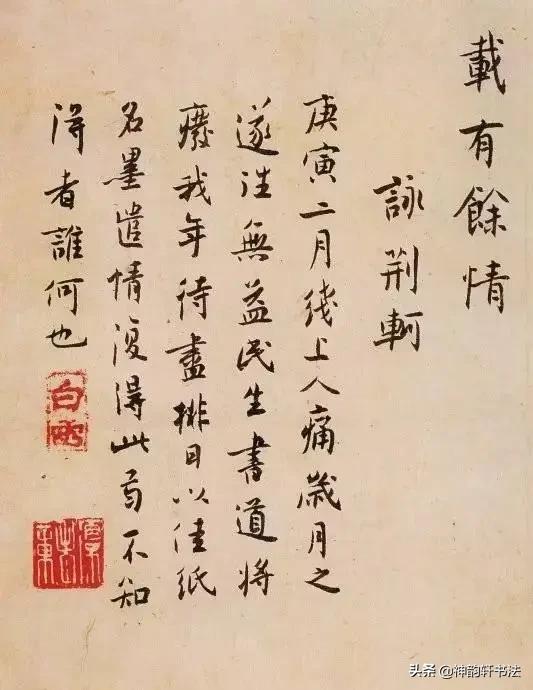 載有餘情
詠荆軻
庚寅二月綫上人痛歲月之
遂往無益民生書道將
廢我年待盡排日以佳紙
名墨遣情復得此不知
得者誰何也
头条 @神韵轩书法